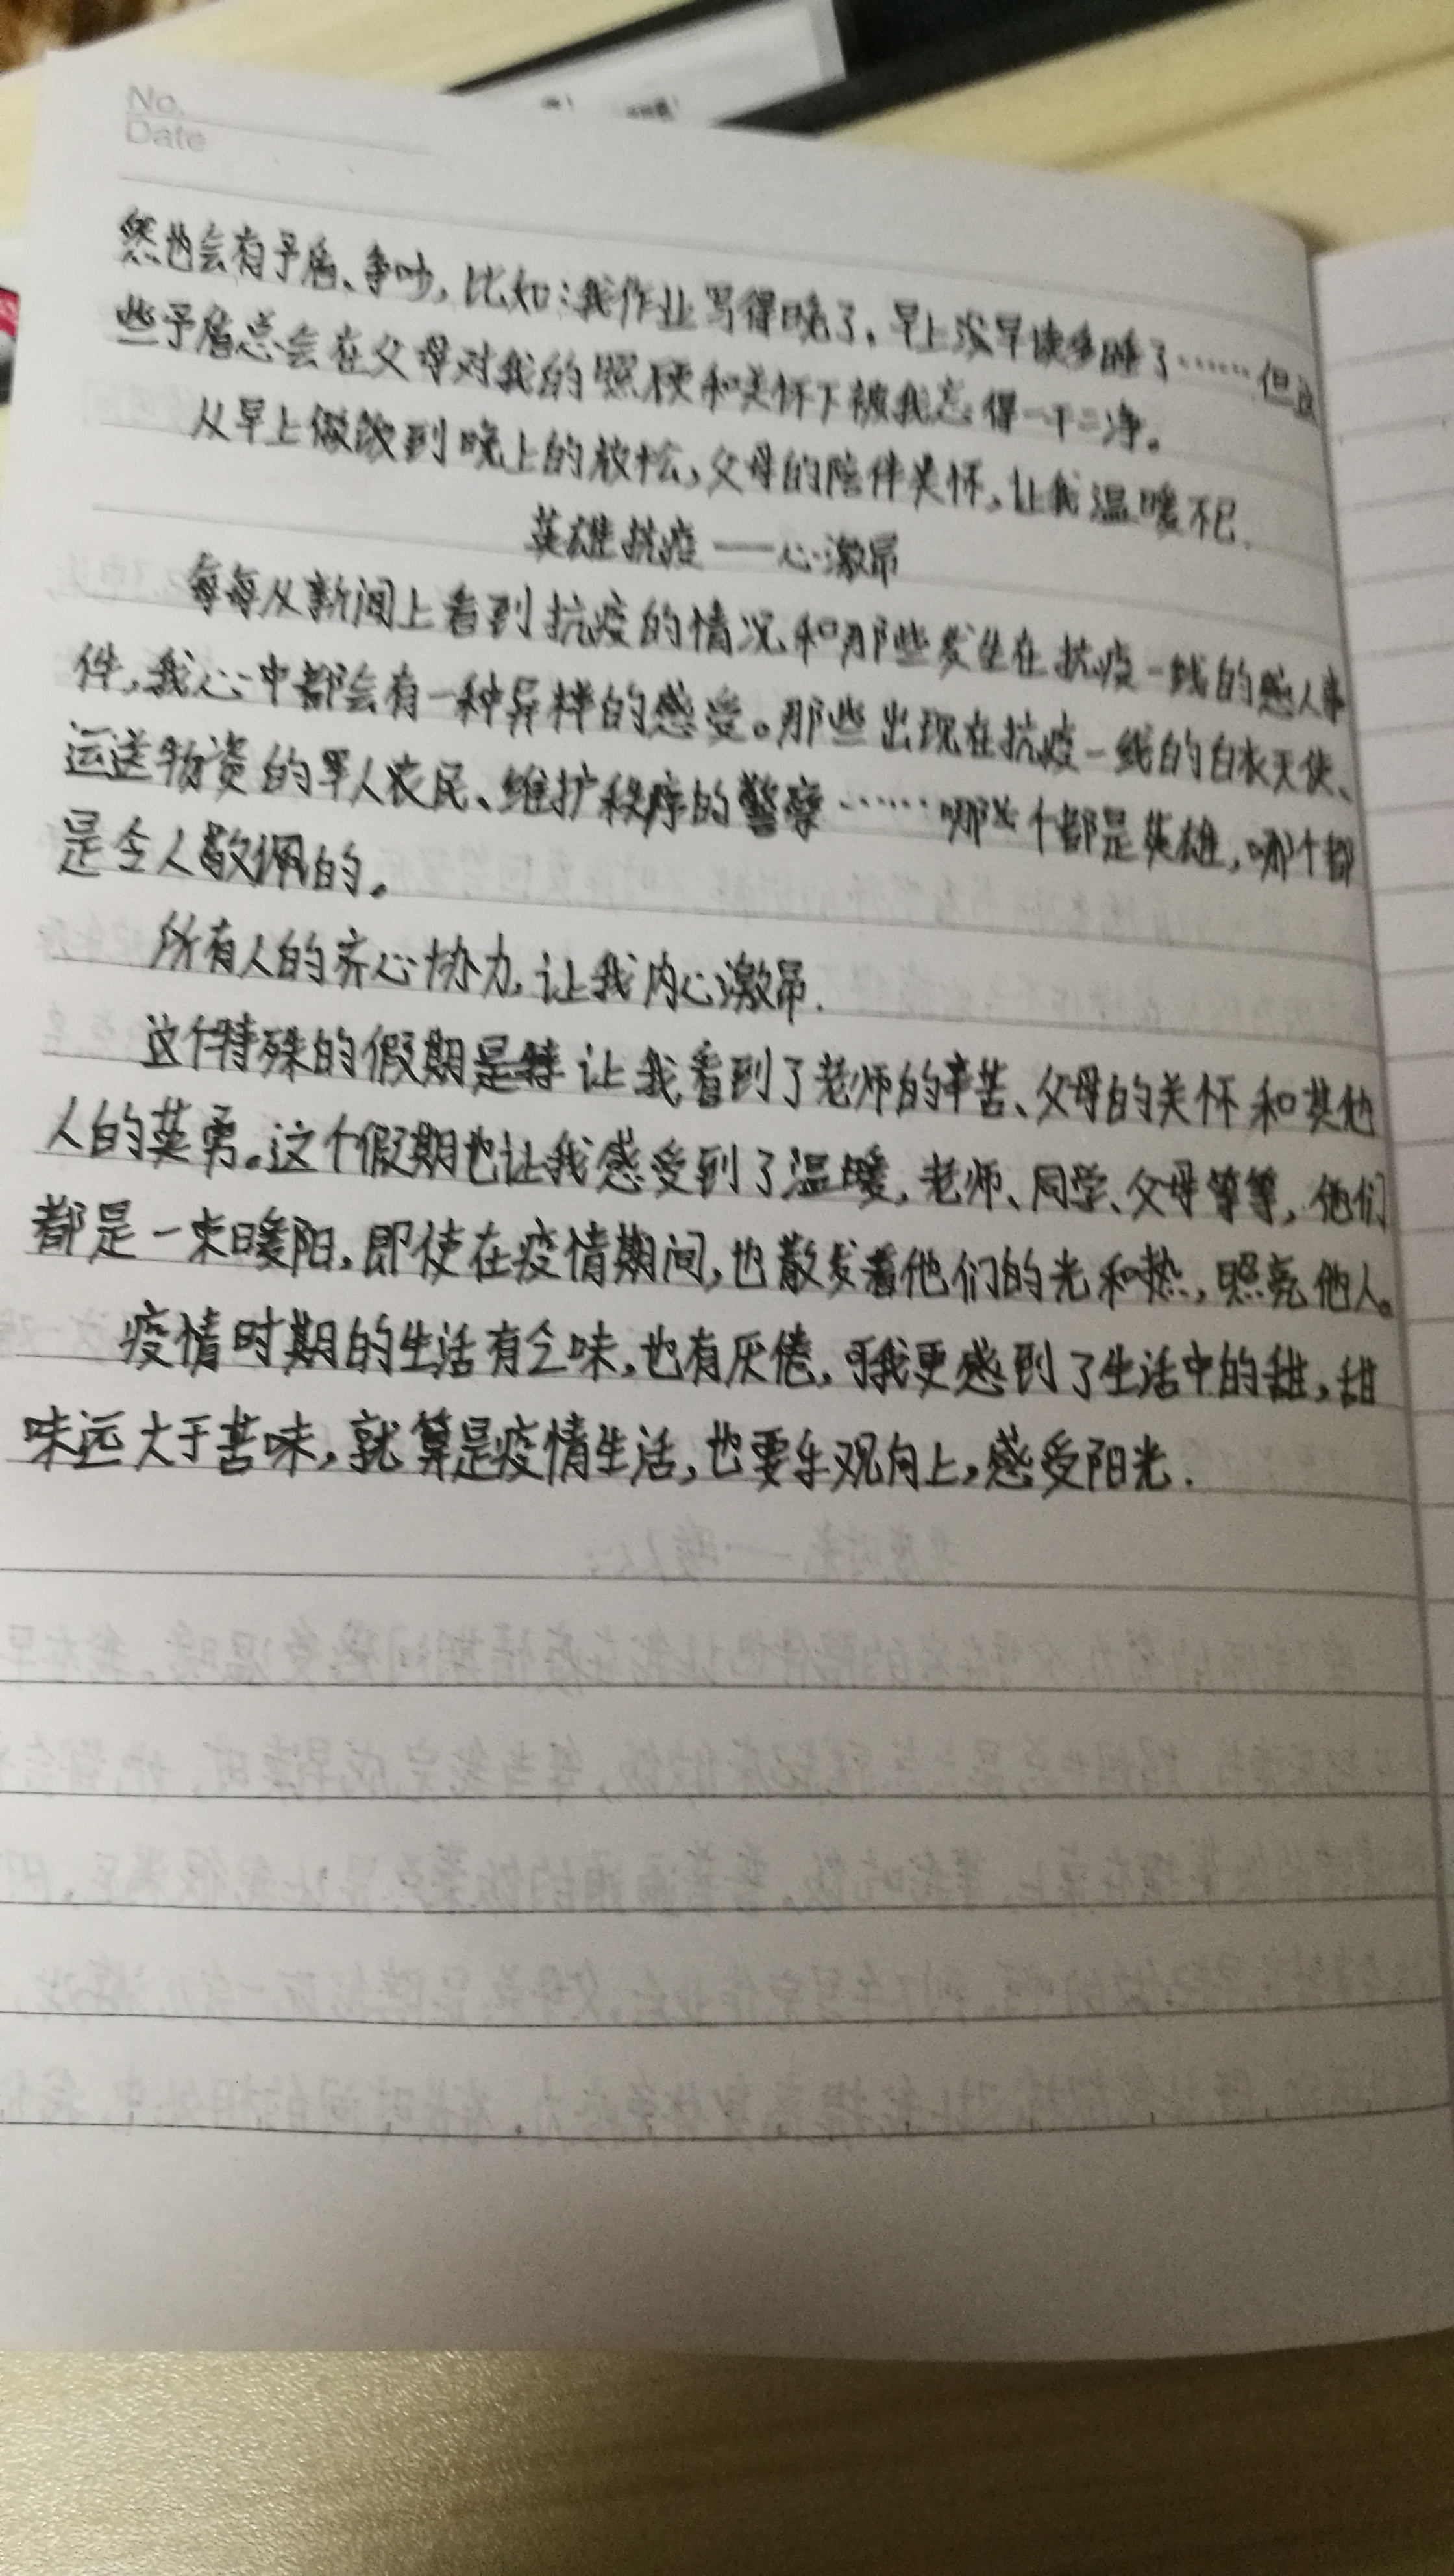 No.
Date
然也会有予盾、争吵，比如：我作业写得晚了，早上没早读多睡了……但这
些予盾总会在父母对我的照顾和关怀下被我忘得一干二净。
从早上做饭到晚上的放松，父母的陪伴关怀，让我温暖不已.
英雄抗疫——心激昂
每每从新闻上看到抗疫的情况和那些发生在抗疫一线的感人事
件，我心中都会有一种异样的感受。那些出现在抗疫一线的白衣天使、
运送物资的军人农民、维护秩序的警察……哪个都是英雄，哪个都
是令人敬佩的。
所有人的齐心协力，让我内心激昂.
这个特殊的假期让我看到了老师的辛苦、父母的关怀和其他
人的英勇。这个假期也让我感受到了温暖，老师、同学、父母等等，他们
都是一束暖阳，即使在疫情期间，也散发着他们的光和热，照亮他人。
疫情时期的生活有乏味，也有厌倦，可我更感到了生活中的甜，甜
味远大于苦味，就算是疫情生活，也要乐观向上，感受阳光.